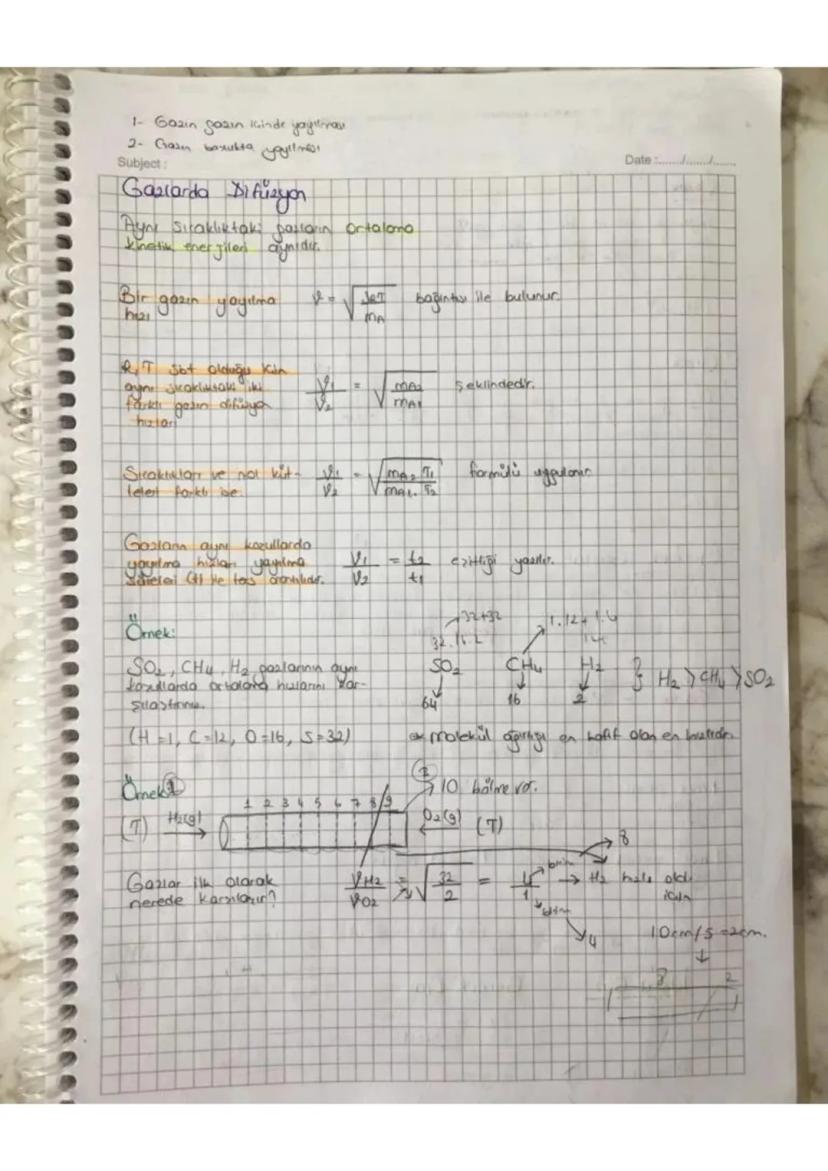 1- Gazın gazın içinde yayılması
2- Gazın boşlukta yayılması
Subject :
Date :....../....../......
Gazlarda Difüzyon
Aynı sıcaklıktaki gazların ortalama
kinetik enerjileri aynıdır.
Bir gazın yayılma hızı v = √(3RT / mA) bağıntısı ile bulunur.
R,T sbt olduğu için
aynı sıcaklıktaki iki
farklı gazın difüzyon
hızları
V1/V2 = √(mA2 / mA1) şeklindedir.
Sıcaklıkları ve mol küt-
leleri farklı ise
V1/V2 = √(mA2 . T1 / mA1 . T2) formülü uygulanır
Gazların aynı koşullarda
yayılma hızları yayılma
süreleri (t) ile ters orantılıdır.
V1/V2 = t2/t1 eşitliği yazılır.
Örnek:
32+32
1.12+1.4
SO2, CH4, H2 gazlarının aynı
koşullarda ortalama hızlarını kar-
şılaştırınız.
SO2 CH4 H2 } H2 > CH4 > SO2
64 16 2
(H=1, C=12, O=16, S=32)
* molekül ağırlığı en hafif olan en hızlıdır.
Örnek
2
1 2 3 4 5 6 7 8 9
10 bölme var.
(T) H2(g) O2(g) (T)
8
Gazlar ilk olarak
nerede karşılaşır?
VH2/VO2 = √(32/2) = 4/1 → H2 hızlı oldu için
birim
birim
4
10cm/5=2cm.
8 2